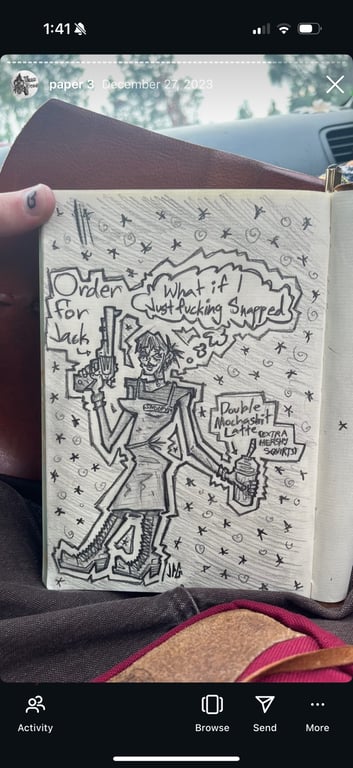 1:41
paper 3 December 27, 2023
Order
for
Jack
What if I
Just fucking Snapped
Double
Mochashit
Latte
(EXTRA
HERSHY
SQUIRTS)
Activity
Browse
Send
More